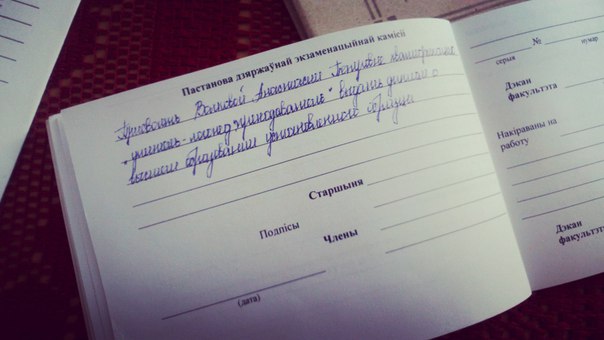 Пастанова дзяржаўнай экзаменацыйнай камісіі
Присвоить Волковой Анастасии квалификацию
"учитель-логопед. Преподаватель" выдать диплом о
высшем образовании установленного образца
Старшыня
Подпісы
Члены
(дата)
№
серыя
нумар
Дэкан
факультэта
Накіраваны на
работу
Дэкан
факультэта